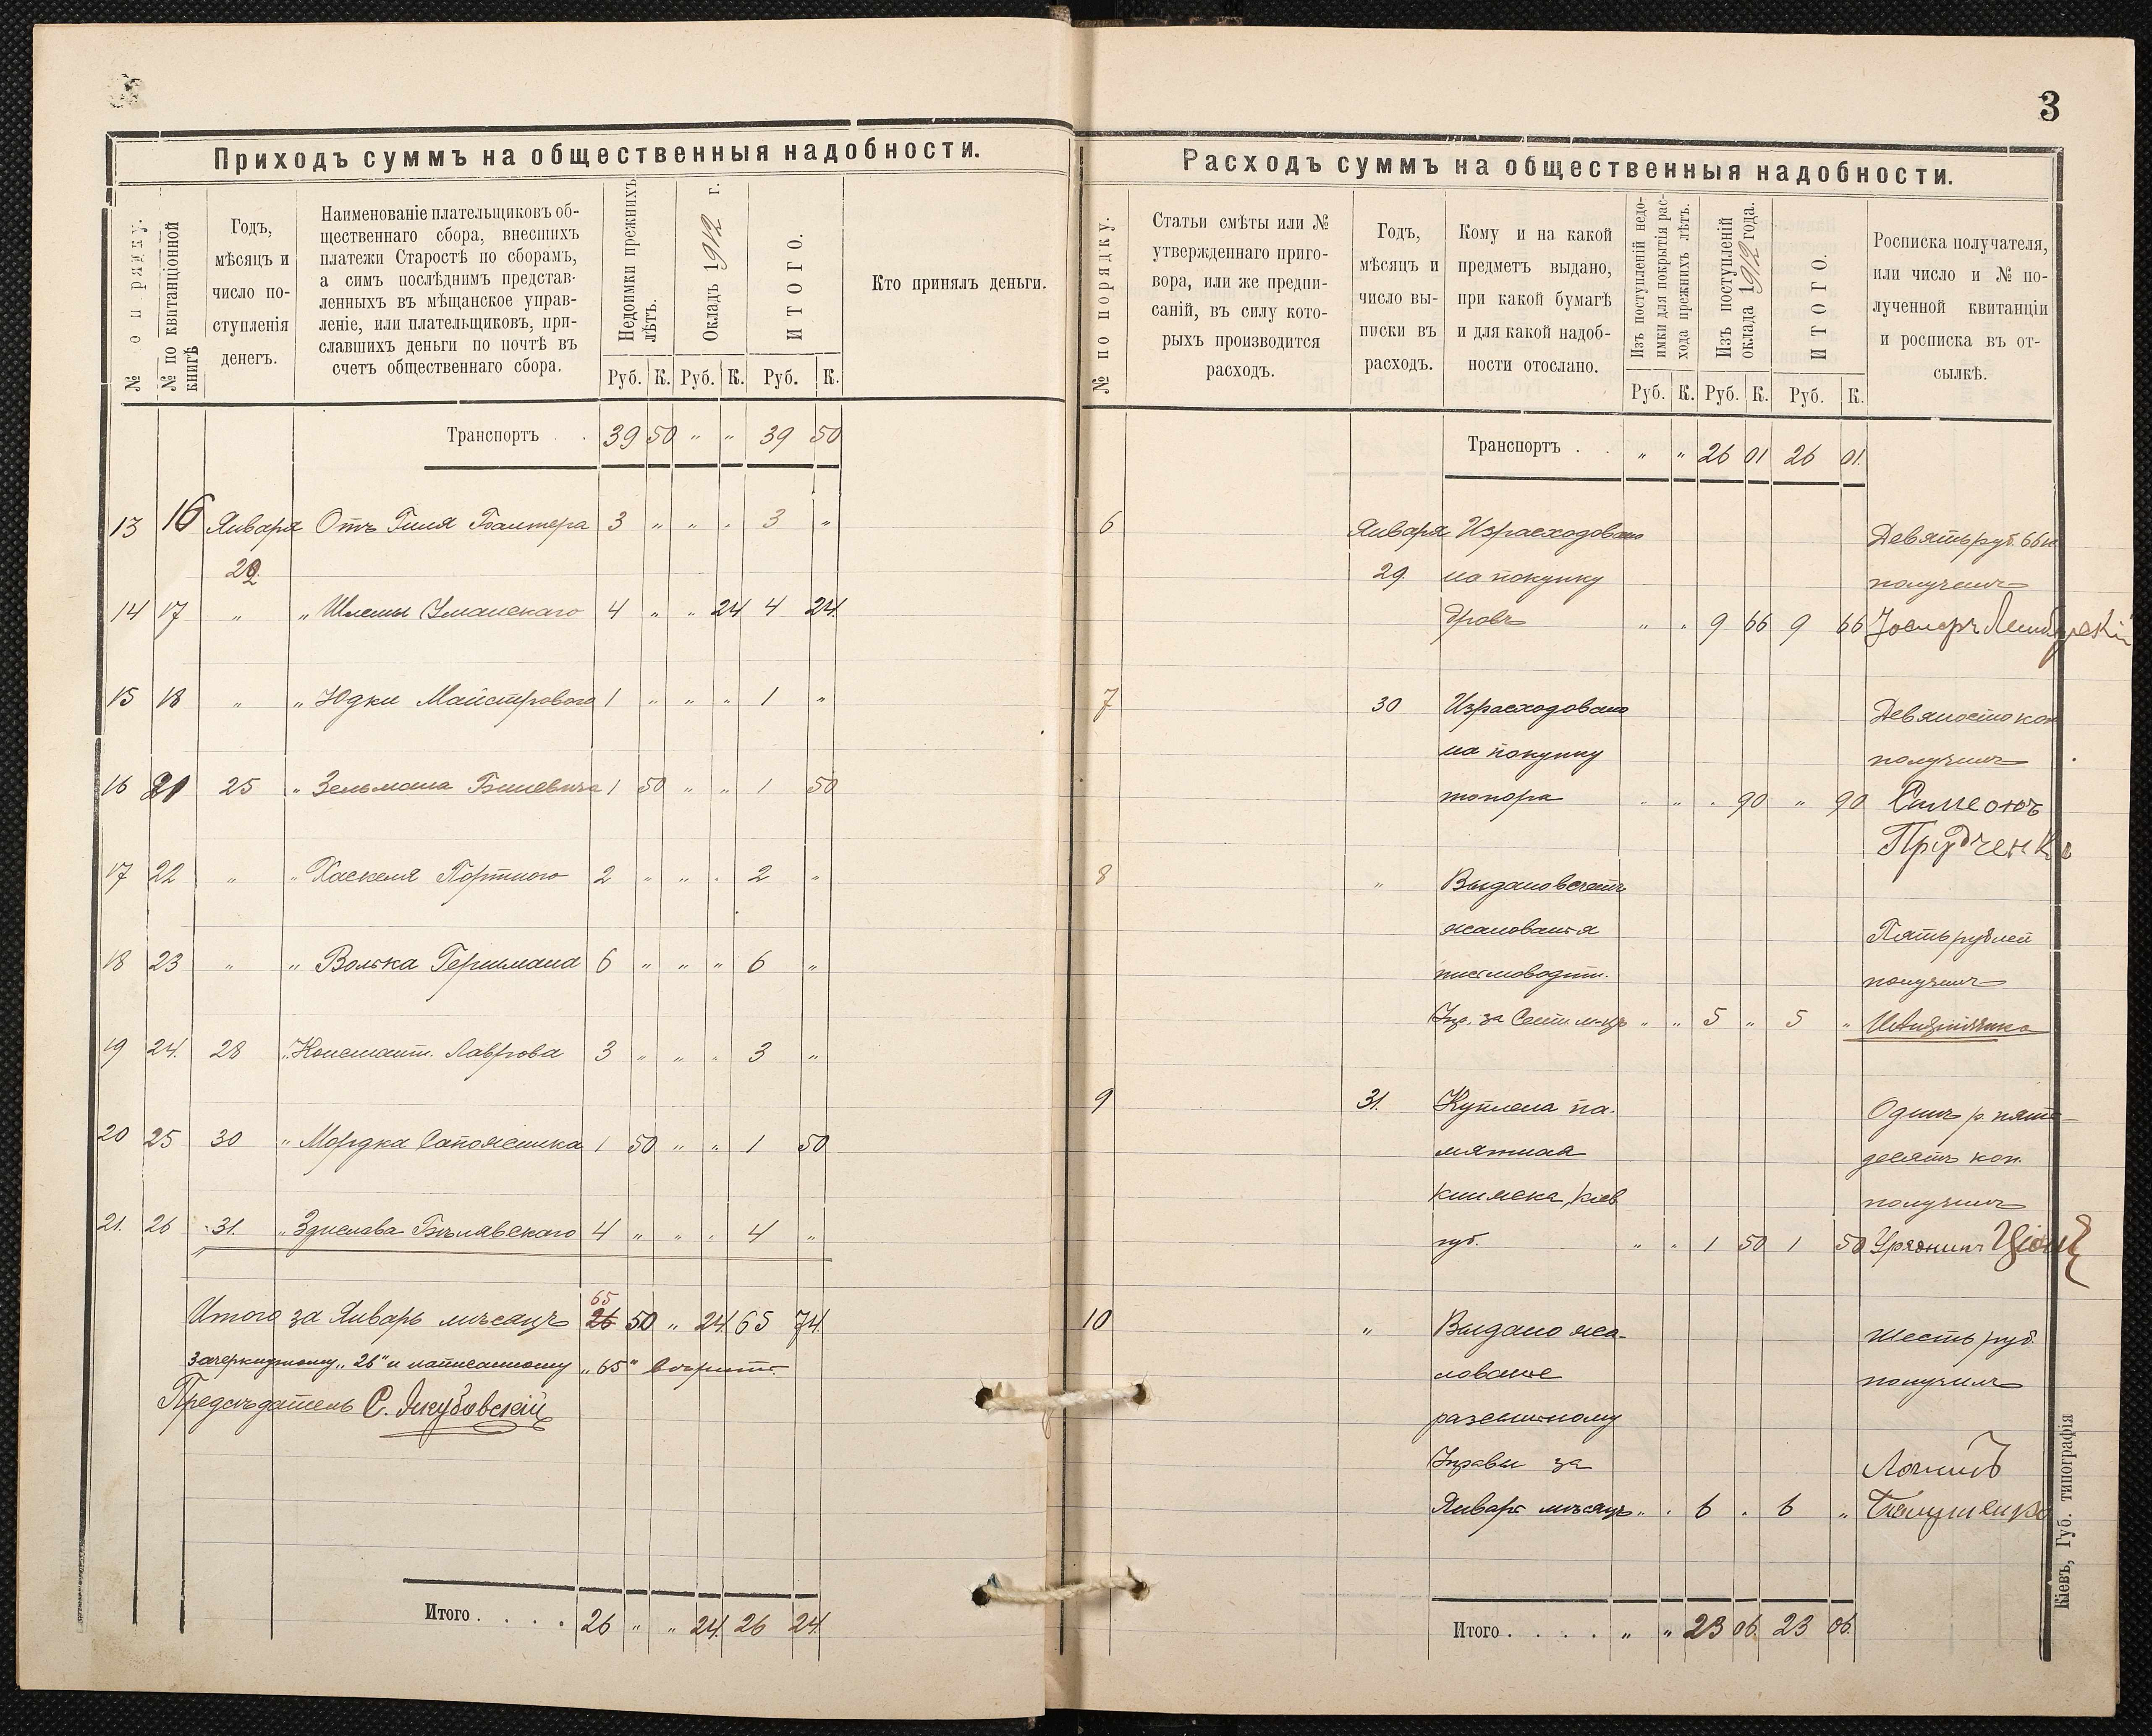 3
Приходъ суммъ на общественныя надобности.
№ по рядку.
№ по квитанціонной книгѣ
Годъ, мѣсяцъ и число поступленія денегъ.
Наименованіе плательщиковъ об-
щественнаго сбора, внесшихъ
платежи Старостѣ по сборамъ,
а симъ послѣднимъ представ-
ленныхъ въ мѣщанское управ-
леніе, или плательщиковъ, при-
славшихъ деньги по почтѣ въ
счетъ общественнаго сбора.
Недоимки прежнихъ лѣтъ.
Окладъ 1912 г.
ИТОГО.
Кто принялъ деньги.
Руб. К. Руб. К. Руб. К.
Транспортъ . . 39 50 " " 39 50
13 16 Января Отъ Гиля Балтера 3 " " " 3 "
29.
14 17 " " Шлемы Уманскаго 4 " " 24 4 24.
15 18 " " Юдки Майстрового 1 " " " 1 "
16 21 25 " Зельмана 1 50 " " 1 50
17 22 " " Хаскеля Портного 2 " " " 2 "
18 23 " " Волька Гершмана 6 " " " 6 "
19 24. 28 " Констант. Лаврова 3 " " " 3 "
20 25 30 " Мордка Сапожника 1 50 " " 1 50
21. 26 31. " Здислава Бѣлявскаго 4 " " " 4 "
65
Итого за Январь мѣсяцъ 26 50 " 24. 65 74.
Зачеркнутому „26" и написанному „65" вѣрить.
Предсѣдатель С. Якубовскій
Итого . . . . 26 " " 24. 26 24.
Расходъ суммъ на общественныя надобности.
№ по порядку.
Статьи смѣты или №
утвержденнаго приго-
вора, или же предпи-
саній, въ силу кото-
рыхъ производится
расходъ.
Годъ,
мѣсяцъ и
число вы-
писки въ
расходъ.
Кому и на какой
предметъ выдано,
при какой бумагѣ
и для какой надоб-
ности отослано.
Изъ поступленій недо-
имки для покрытія рас-
хода прежнихъ лѣтъ.
Изъ поступленій
оклада 1912 года.
ИТОГО.
Росписка получателя,
или число и № по-
лученной квитанціи
и росписка въ от-
сылкѣ.
Руб. К. Руб. К. Руб. К.
Транспортъ . . " " 26 01 26 01.
6 Января Израсходовано Девять руб. 66 к
29. на покупку получилъ
дровъ " " 9 66 9 66
7 30 Израсходовано Девяносто коп
на покупку получилъ
топора " " " 90 " 90 Симеонъ
Прудченко
8 " Выдано въ счетъ
жалованья Пять рублей
письмоводит. получилъ
Упр. за Сент м-цъ " " 5 " 5 "
9 31. Куплена па- Одинъ р. пять-
мятная десятъ коп.
книжка Кіев получилъ
губ. " " 1 50 1 50 Урядникъ
10 " Выдано жа- Шесть руб.
лованье получилъ
разсыльному
Управы за Логинъ
Январь мѣсяцъ " " 6 " 6 "
Итого . . . . " " 23 06. 23 06.
Кіевъ, Губ. типографія